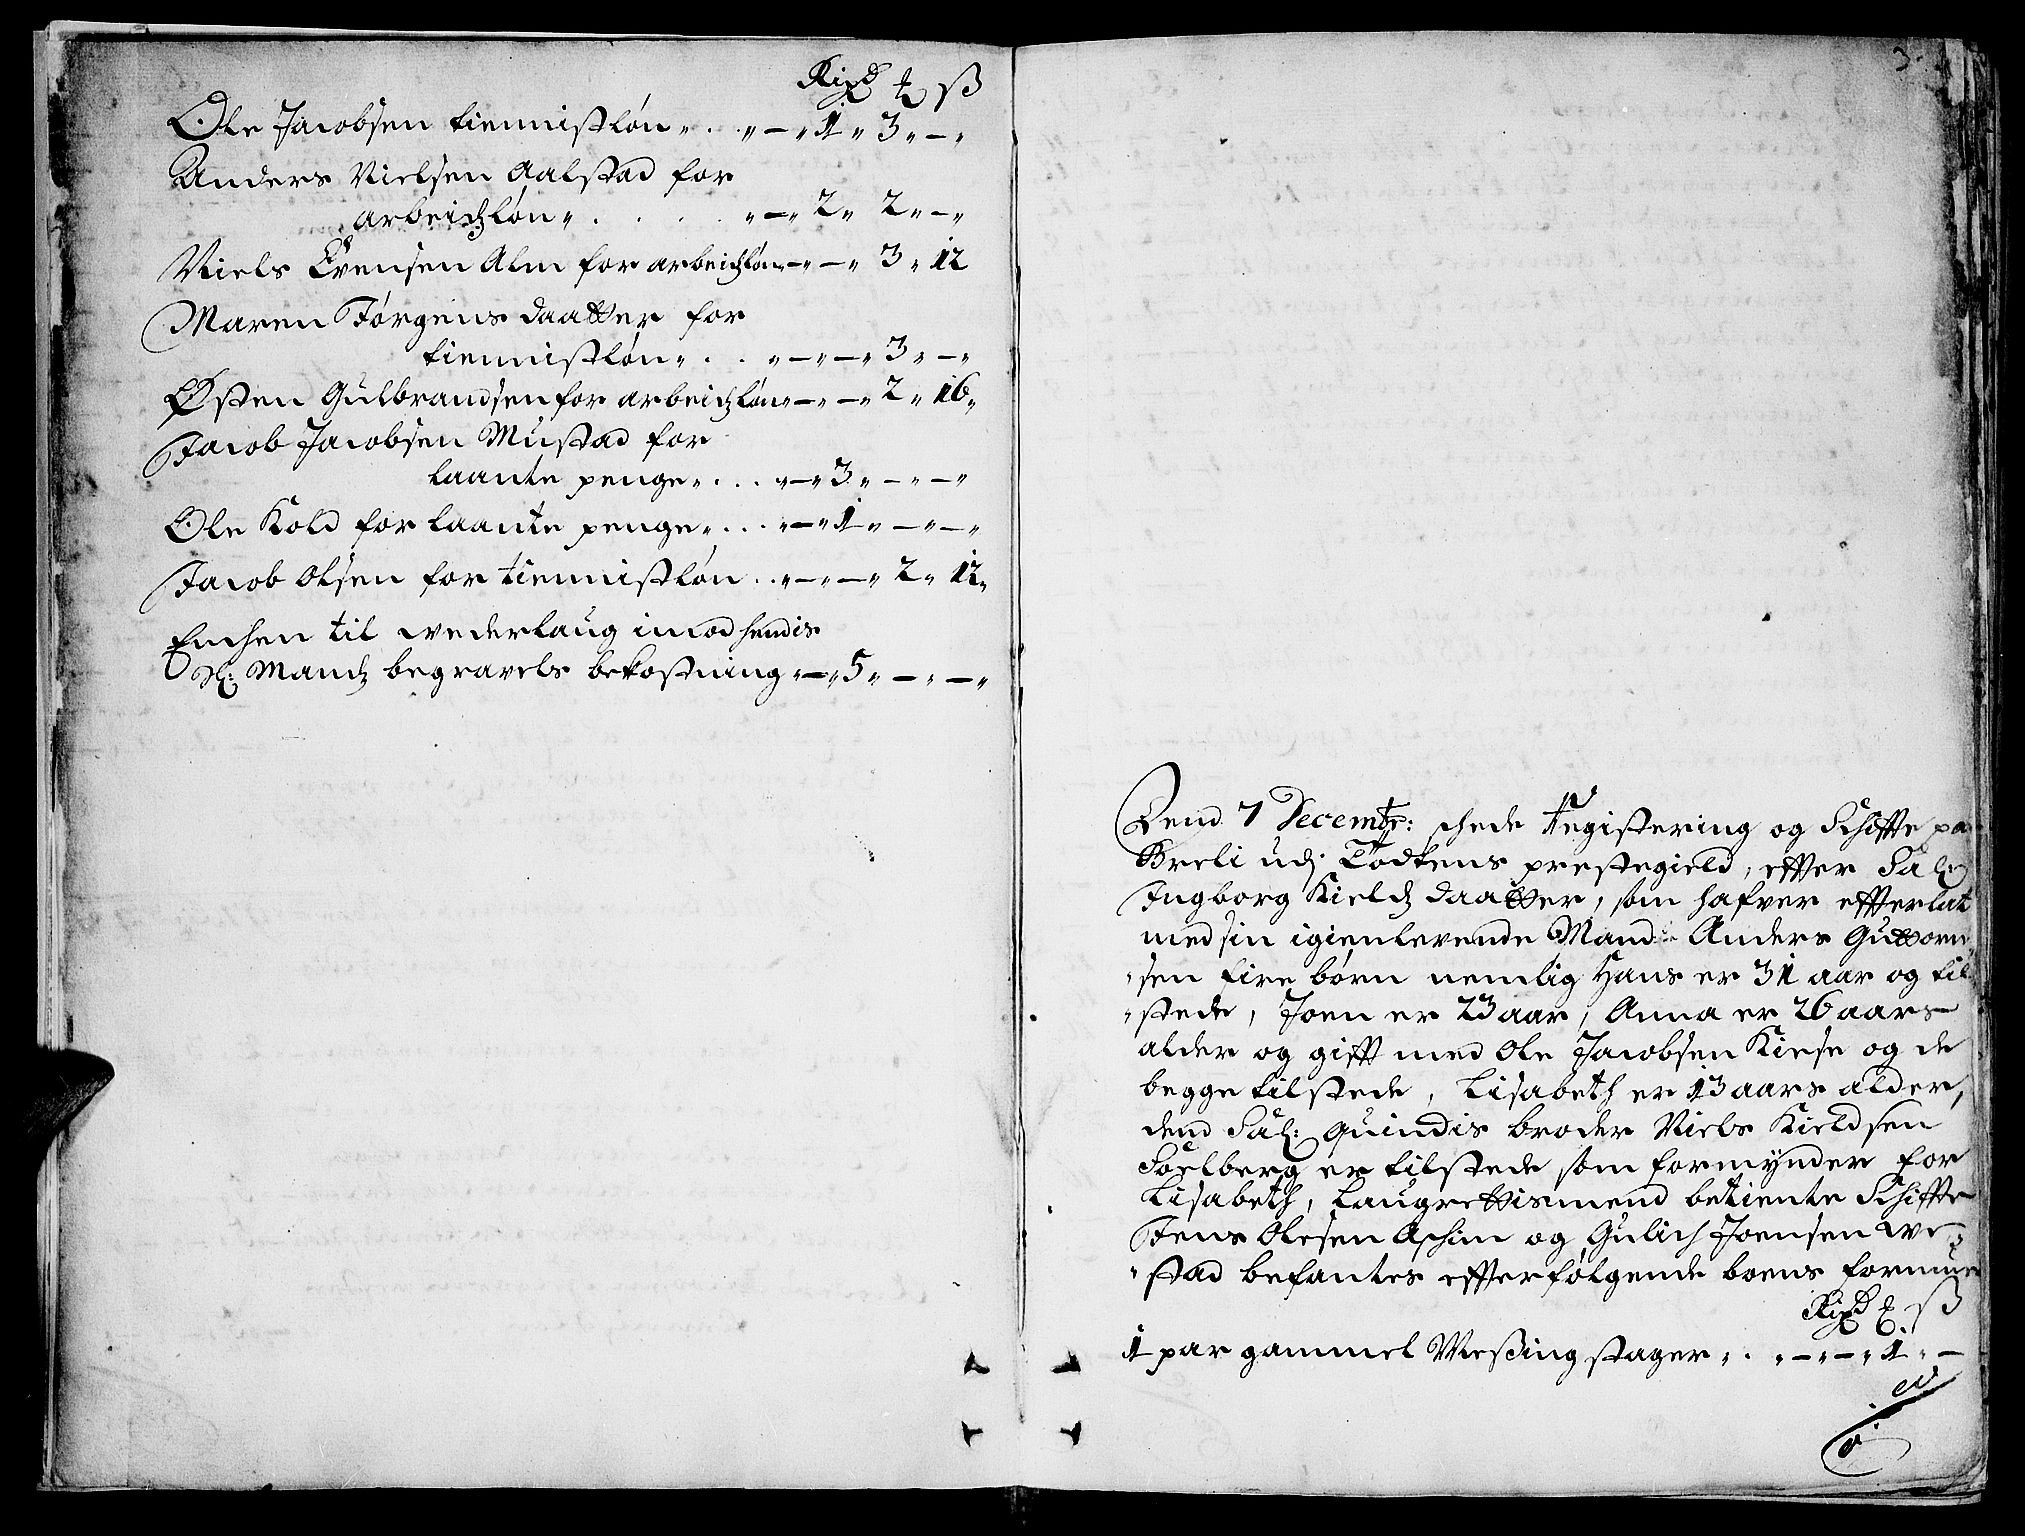 Rixd ł ß
Ole Jacobsen tiennistløn „ . . „ – „ 1 „ 3 „ – „
Anders Nielsen Aalstad for
arbeidzløn „ . . . . „ – „ 2 „ 2 „ – „
Niels Evensen Alm for arbeidzløn „ – „ – „ 3 „ 12
Maren Jørgens daatter for
tiennistløn „ . . „ – „ – „ 3 „ – „
Østen Gulbrandsen for arbeidzløn „ – „ – „ 2 „ 16 „
Jacob Jacobsen Mustad for
laante penge „ . . . „ – „ 3 „ – „ – „
Ole Kold for laante penge „ . . . „ – „ 1 „ – „ – „
Jacob Olsen for tiennistløn . . „ – „ – „ 2 „ 12 „
Enchen til wederlaug imod hendis
Sl: Mandz begravels bekostning „ – „ 5 „ – „ – „
3.
Dend 7 Decembr: schede Registering og Schiffte paa
Breli udj Todtens prestegield, effter Sal:
Ingborg Kieldz daatter, som hafver effterlat
med sin igienlevende Mand Anders Guttorm
„sen fire børn nemlig Hans er 31 aar og til
„stede, Joen er 23 aar, Anna er 26 aars
alder og gifft med Ole Jacobsen Kiese og de
begge tilstede, Lisabeth er 13 aars alder,
dend Sal: quindis broder Niels Kieldsen
Soelberg er tilstede som formynder for
Lisabeth, Laugrettismend betiente Schiffte
Jens Olesen Aschim og Gulich Joensen We-
„stad befantes effterfølgende boens formue
Rixd ł ß
1 par gammel Messing stager „ . „ – „ – „ 1 „ –